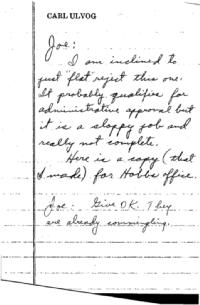 CARL ULVOG
Joe:
I am inclined to
just "flat reject this one.
It probably qualifies for
administrative approval but
it is a sloppy job and
really not complete.
Here is a copy (that
I made) for Hobbs office.
Joe: Give OK. They
are already commingling.